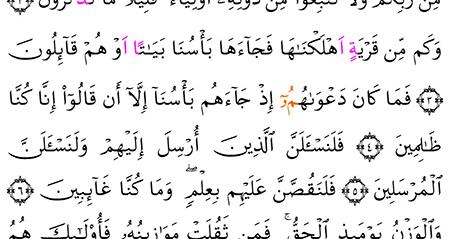 مِّن رَّبِّكُمْ وَلَا تَتَّبِعُوا۟ مِن دُونِهِۦٓ أَوْلِيَآءَ قَلِيلًا مَّا تَذَكَّرُونَ ﴿٢﴾
وَكَم مِّن قَرْيَةٍ اَهْلَكْنَـٰهَا فَجَآءَهَا بَأْسُنَا بَيَـٰتًا اَوْ هُمْ قَآئِلُونَ
﴿٣﴾ فَمَا كَانَ دَعْوَىٰهُمُۥٓ إِذْ جَآءَهُم بَأْسُنَآ إِلَّآ أَن قَالُوٓا۟ إِنَّا كُنَّا
ظَـٰلِمِينَ ﴿٤﴾ فَلَنَسْـَٔلَنَّ ٱلَّذِينَ أُرْسِلَ إِلَيْهِمْ وَلَنَسْـَٔلَنَّ
ٱلْمُرْسَلِينَ ﴿٥﴾ فَلَنَقُصَّنَّ عَلَيْهِم بِعِلْمٍۖ وَمَا كُنَّا غَآئِبِينَ ﴿٦﴾
وَٱلْوَزْنُ يَوْمَئِذٍ ٱلْحَقُّۚ فَمَن ثَقُلَتْ مَوَٰزِينُهُۥ فَأُو۟لَـٰٓئِكَ هُمُ